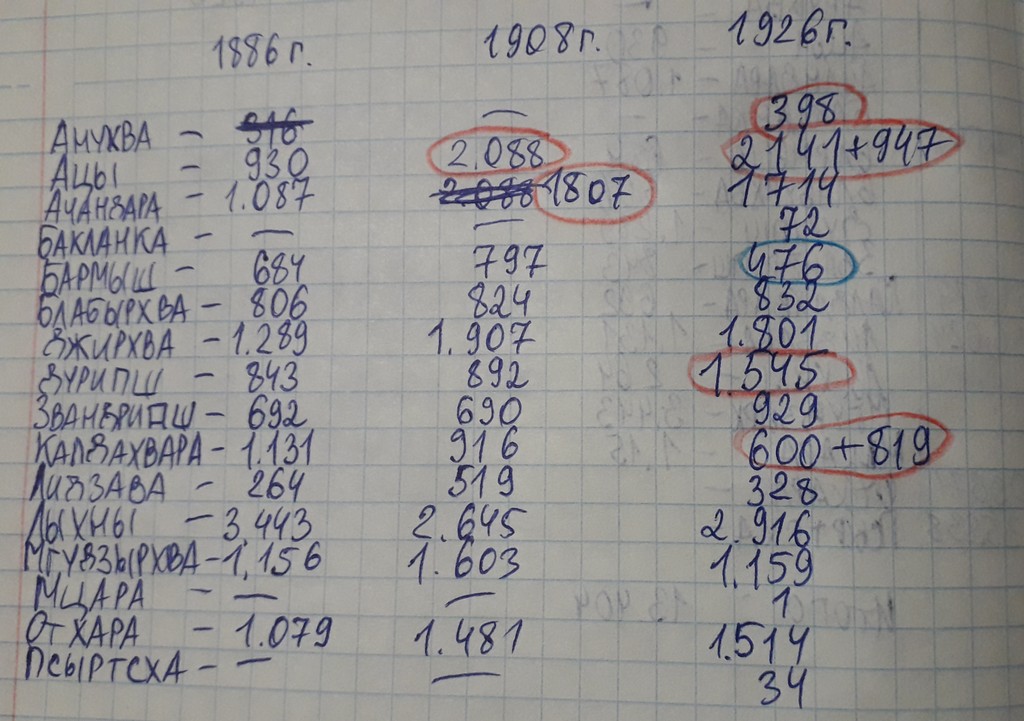 1886 г. 1908 г. 1926 г.
АНУХВА - 916 — 398
АЦЫ - 930 2.088 2141+947
АЧАНДАРА - 1.087 2.088 1807 1714
БАКЛАНКА - — — 72
БАРМЫШ - 684 797 476
БЛАБЫРХВА - 806 824 832
ДЖИРХВА - 1.289 1.907 1.801
ДУРИПШ - 843 892 1.545
ЗВАНДРИПШ - 692 690 929
КАЛДАХВАРА - 1.131 916 600+819
ЛИДЗАВА - 264 519 328
ЛЫХНЫ - 3.443 2.645 2.916
МГУДЗЫРХВА - 1.156 1.603 1.159
МЦАРА - — — 1
ОТХАРА - 1.079 1.481 1.514
ПСЫРТСХА - — — 34